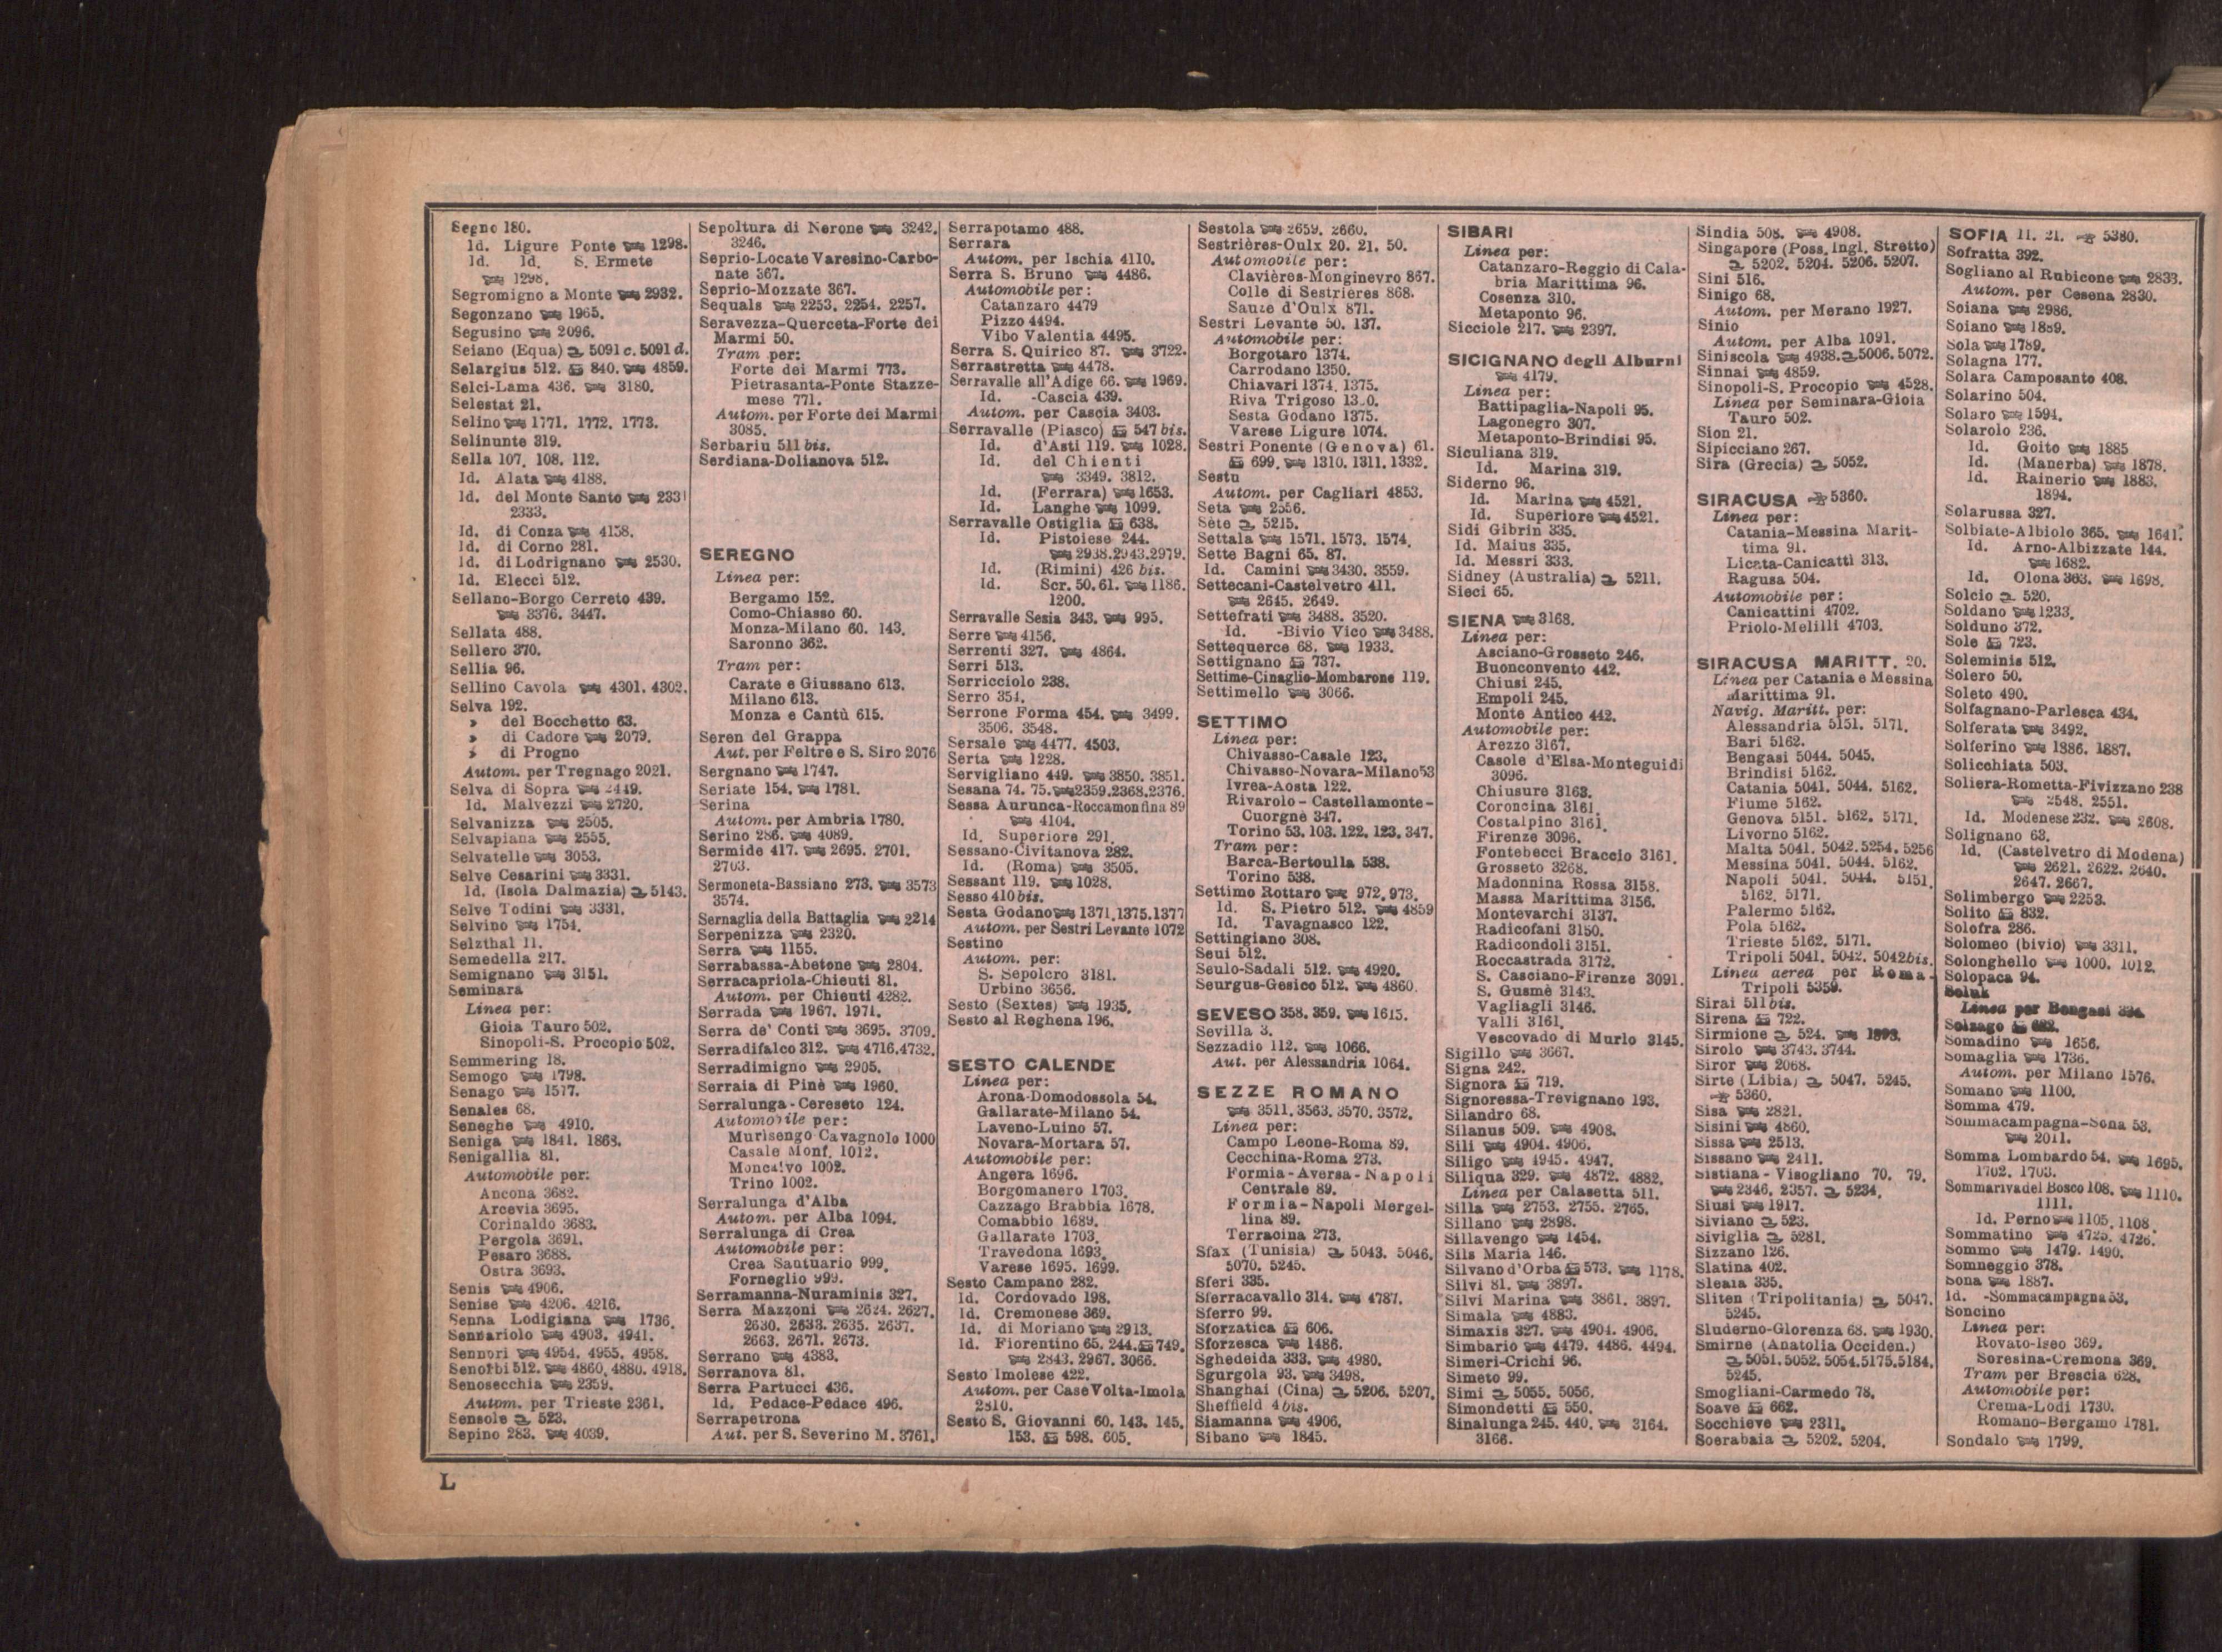 Segno 180.
Id. Ligure Ponte 1298.
Id. Id. S. Ermete
1298.
Segromigno a Monte 2932.
Segonzano 1965.
Segusino 2096.
Seiano (Equa) 5091 c. 5091 d.
Selargius 512. 840. 4859.
Selci-Lama 436. 3180.
Selestat 21.
Selino 1771. 1772. 1773.
Selinunte 319.
Sella 107. 108. 112.
Id. Alata 4188.
Id. del Monte Santo 2331
2333.
Id. di Conza 4158.
Id. di Corno 281.
Id. di Lodrignano 2530.
Id. Elecci 512.
Sellano-Borgo Cerreto 439.
3376. 3447.
Sellata 488.
Sellero 370.
Sellia 96.
Sellino Cavola 4301. 4302.
Selva 192.
» del Bocchetto 63.
» di Cadore 2079.
» di Progno
Autom. per Tregnago 2021.
Selva di Sopra 2449.
Id. Malvezzi 2720.
Selvanizza 2505.
Selvapiana 2555.
Selvatelle 3053.
Selve Cesarini 3331.
Id. (Isola Dalmazia) 5143.
Selve Todini 3331.
Selvino 1754.
Selzthal 11.
Semedella 217.
Semignano 3151.
Seminara
Linea per:
Gioia Tauro 502.
Sinopoli-S. Procopio 502.
Semmering 18.
Semogo 1798.
Senago 1517.
Senales 68.
Seneghe 4910.
Seniga 1841. 1868.
Senigallia 81.
Automobile per:
Ancona 3682.
Arcevia 3695.
Corinaldo 3683.
Pergola 3691.
Pesaro 3688.
Ostra 3693.
Senis 4906.
Senise 4206. 4216.
Senna Lodigiana 1736.
Sennariolo 4903. 4941.
Sennori 4954. 4955. 4958.
Senorbì 512. 4860. 4880. 4918.
Senosecchia 2359.
Autom. per Trieste 2361.
Sensole 523.
Sepino 283. 4039.
Sepoltura di Nerone 3242.
3246.
Seprio-Locate Varesino-Carbo-
nate 367.
Seprio-Mozzate 367.
Sequals 2253. 2254. 2257.
Seravezza-Querceta-Forte dei
Marmi 50.
Tram per:
Forte dei Marmi 773.
Pietrasanta-Ponte Stazze-
mese 771.
Autom. per Forte dei Marmi
3085.
Serbariu 511 bis.
Serdiana-Dolianova 512.
SEREGNO
Linea per:
Bergamo 152.
Como-Chiasso 60.
Monza-Milano 60. 143.
Saronno 362.
Tram per:
Carate e Giussano 613.
Milano 613.
Monza e Cantù 615.
Seren del Grappa
Aut. per Feltre e S. Siro 2076
Sergnano 1747.
Seriate 154. 1781.
Serina
Autom. per Ambria 1780.
Serino 286. 4089.
Sermide 417. 2695. 2701.
2703.
Sermoneta-Bassiano 273. 3573
3574.
Sernaglia della Battaglia 2214
Serpenizza 2320.
Serra 1155.
Serrabassa-Abetone 2804.
Serracapriola-Chieuti 81.
Autom. per Chieuti 4282.
Serrada 1967. 1971.
Serra de' Conti 3695. 3709.
Serradifalco 312. 4716.4732.
Serradimigno 2905.
Serraia di Pinè 1960.
Serralunga-Cereseto 124.
Automobile per:
Murisengo Cavagnolo 1000
Casale Monf. 1012.
Moncalvo 1002.
Trino 1002.
Serralunga d'Alba
Autom. per Alba 1094.
Serralunga di Crea
Automobile per:
Crea Santuario 999.
Forneglio 999.
Serramanna-Nuraminis 327.
Serra Mazzoni 2624. 2627.
2630. 2633. 2635. 2637.
2663. 2671. 2673.
Serrano 4383.
Serranova 81.
Serra Partucci 436.
Id. Pedace-Pedace 496.
Serrapetrona
Aut. per S. Severino M. 3761.
Serrapotamo 488.
Serrara
Autom. per Ischia 4110.
Serra S. Bruno 4486.
Automobile per:
Catanzaro 4479
Pizzo 4494.
Vibo Valentia 4495.
Serra S. Quirico 87. 3722.
Serrastretta 4478.
Serravalle all'Adige 66. 1969.
Id. -Cascia 439.
Autom. per Cascia 3403.
Serravalle (Piasco) 547 bis.
Id. d'Asti 119. 1028.
Id. del Chienti
3349. 3812.
Id. (Ferrara) 1653.
Id. Langhe 1099.
Serravalle Ostiglia 638.
Id. Pistoiese 244.
2938.2943.2979.
Id. (Rimini) 426 bis.
Id. Scr. 50. 61. 1186.
1200.
Serravalle Sesia 343. 995.
Serre 4156.
Serrenti 327. 4864.
Serri 513.
Serricciolo 238.
Serro 354.
Serrone Forma 454. 3499.
3506. 3548.
Sersale 4477. 4503.
Serta 1228.
Servigliano 449. 3850. 3851.
Sesana 74. 75. 2359.2368.2376.
Sessa Aurunca-Roccamonfina 89
4104.
Id. Superiore 291.
Sessano-Civitanova 282.
Id. (Roma) 3505.
Sessant 119. 1028.
Sesso 410 bis.
Sesta Godano 1371.1375.1377
Autom. per Sestri Levante 1072
Sestino
Autom. per:
S. Sepolcro 3181.
Urbino 3656.
Sesto (Sextes) 1935.
Sesto al Reghena 196.
SESTO CALENDE
Linea per:
Arona-Domodossola 54.
Gallarate-Milano 54.
Laveno-Luino 57.
Novara-Mortara 57.
Automobile per:
Angera 1696.
Borgomanero 1703.
Cazzago Brabbia 1678.
Comabbio 1689.
Gallarate 1703.
Travedona 1693.
Varese 1695. 1699.
Sesto Campano 282.
Id. Cordovado 198.
Id. Cremonese 369.
Id. di Moriano 2913.
Id. Fiorentino 65. 244. 749.
2843. 2967. 3066.
Sesto Imolese 422.
Autom. per Case Volta-Imola
2810.
Sesto S. Giovanni 60. 143. 145.
153. 598. 605.
Sestola 2659. 2660.
Sestrières-Oulx 20. 21. 50.
Automobile per:
Clavières-Monginevro 867.
Colle di Sestrières 868.
Sauze d'Oulx 871.
Sestri Levante 50. 137.
Automobile per:
Borgotaro 1374.
Carrodano 1350.
Chiavari 1374. 1375.
Riva Trigoso
Sesta Godano 1375.
Varese Ligure 1074.
Sestri Ponente (Genova) 61.
699. 1310. 1311. 1332.
Sestu
Autom. per Cagliari 4853.
Seta 2556.
Sète 5215.
Settala 1571. 1573. 1574.
Sette Bagni 65. 87.
Id. Camini 3430. 3559.
Settecani-Castelvetro 411.
2645. 2649.
Settefrati 3488. 3520.
Id. -Bivio Vico 3488.
Settequerce 68. 1933.
Settignano 737.
Settime-Cinaglio-Mombarone 119.
Settimello 3066.
SETTIMO
Linea per:
Chivasso-Casale 123.
Chivasso-Novara-Milano 53
Ivrea-Aosta 122.
Rivarolo-Castellamonte-
Cuorgnè 347.
Torino 53. 103. 122. 123. 347.
Tram per:
Barca-Bertoulla 538.
Torino 538.
Settimo Rottaro 972. 973.
Id. S. Pietro 512. 4859
Id. Tavagnasco 122.
Settingiano 308.
Seui 512.
Seulo-Sadali 512. 4920.
Seurgus-Gesico 512. 4860.
SEVESO 358. 359. 1615.
Sevilla 3.
Sezzadio 112. 1066.
Aut. per Alessandria 1064.
SEZZE ROMANO
3511. 3563. 3570. 3572.
Linea per:
Campo Leone-Roma 89.
Cecchina-Roma 273.
Formia-Aversa-Napoli
Centrale 89.
Formia-Napoli Mergel-
lina 89.
Terracina 273.
Sfax (Tunisia) 5043. 5046.
5070. 5245.
Sferi 335.
Sferracavallo 314. 4787.
Sferro 99.
Sforzatica 606.
Sforzesca 1486.
Sghedeida 333. 4980.
Sgurgola 93. 3498.
Shanghai (Cina) 5206. 5207.
Sheffield 4 bis.
Siamanna 4906.
Sibano 1845.
SIBARI
Linea per:
Catanzaro-Reggio di Cala-
bria Marittima 96.
Cosenza 310.
Metaponto 96.
Sicciole 217. 2397.
SICIGNANO degli Alburni
4179.
Linea per:
Battipaglia-Napoli 95.
Lagonegro 307.
Metaponto-Brindisi 95.
Siculiana 319.
Id. Marina 319.
Siderno 96.
Id. Marina 4521.
Id. Superiore 4521.
Sidi Gibrin 335.
Id. Maius 335.
Id. Messri 333.
Sidney (Australia) 5211.
Sieci 65.
SIENA 3168.
Linea per:
Asciano-Grosseto 246.
Buonconvento 442.
Chiusi 245.
Empoli 245.
Monte Antico 442.
Automobile per:
Arezzo 3167.
Casole d'Elsa-Monteguidi
3096.
Chiusure 3163.
Coroncina 3161.
Costalpino 3161.
Firenze 3096.
Fontebecci Braccio 3161.
Grosseto 3268.
Madonnina Rossa 3158.
Massa Marittima 3156.
Montevarchi 3137.
Radicofani 3150.
Radicondoli 3151.
Roccastrada 3172.
S. Casciano-Firenze 3091.
S. Gusmè 3143.
Vagliagli 3146.
Valli 3161.
Vescovado di Murlo 3145.
Sigillo 3667.
Signa 242.
Signora 719.
Signoressa-Trevignano 193.
Silandro 68.
Silanus 509. 4908.
Sili 4904. 4906.
Siligo 4945. 4947.
Siliqua 329. 4872. 4882.
Linea per Calasetta 511.
Silla 2753. 2755. 2765.
Sillano 2898.
Sillavengo 1454.
Sils Maria 146.
Silvano d'Orba 573. 1178.
Silvi 81. 3897.
Silvi Marina 3861. 3897.
Simala 4883.
Simaxis 327. 4904. 4906.
Simbario 4479. 4486. 4494.
Simeri-Crichi 96.
Simeto 99.
Simi 5055. 5056.
Simondetti 550.
Sinalunga 245. 440. 3164.
3166.
Sindia 508. 4908.
Singapore (Poss. Ingl. Stretto)
5202. 5204. 5206. 5207.
Sini 516.
Sinigo 68.
Autom. per Merano 1927.
Sinio
Autom. per Alba 1091.
Siniscola 4938. 5006. 5072.
Sinnai 4859.
Sinopoli-S. Procopio 4528.
Linea per Seminara-Gioia
Tauro 502.
Sion 21.
Sipicciano 267.
Sira (Grecia) 5052.
SIRACUSA 5360.
Linea per:
Catania-Messina Marit-
tima 91.
Licata-Canicattì 313.
Ragusa 504.
Automobile per:
Canicattini 4702.
Priolo-Melilli 4703.
SIRACUSA MARITT. 20.
Linea per Catania e Messina
Marittima 91.
Navig. Maritt. per:
Alessandria 5151. 5171.
Bari 5162.
Bengasi 5044. 5045.
Brindisi 5162.
Catania 5041. 5044. 5162.
Fiume 5162.
Genova 5151. 5162. 5171.
Livorno 5162.
Malta 5041. 5042. 5254. 5256
Messina 5041. 5044. 5162.
Napoli 5041. 5044. 5151.
5162. 5171.
Palermo 5162.
Pola 5162.
Trieste 5162. 5171.
Tripoli 5041. 5042. 5042bis.
Linea aerea per Roma-
Tripoli 5359.
Sirai 511 bis.
Sirena 722.
Sirmione 524. 1893.
Sirolo 3743. 3744.
Siror 2068.
Sirte (Libia) 5047. 5245.
5360.
Sisa 2821.
Sisini 4860.
Sissa 2513.
Sissano 2411.
Sistiana-Visogliano 70. 79.
2346. 2357. 5234.
Siusi 1917.
Siviano 523.
Siviglia 5281.
Sizzano 126.
Slatina 402.
Sleaia 335.
Sliten (Tripolitania) 5047.
5245.
Sluderno-Glorenza 68. 1930.
Smirne (Anatolia Occiden.)
5051. 5052. 5054.5175.5184.
5245.
Smogliani-Carmedo 78.
Soave 662.
Socchieve 2311.
Soerabaia 5202. 5204.
SOFIA 11. 21. 5380.
Sofratta 392.
Sogliano al Rubicone 2833.
Autom. per Cesena 2830.
Soiana 2986.
Soiano 1889.
Sola 1789.
Solagna 177.
Solara Camposanto 408.
Solarino 504.
Solaro 1594.
Solarolo 236.
Id. Goito 1885
Id. (Manerba) 1878.
Id. Rainerio 1883.
1894.
Solarussa 327.
Solbiate-Albiolo 365. 1641.
Id. Arno-Albizzate 144.
1682.
Id. Olona 363. 1698.
Solcio 520.
Soldano 1233.
Solduno 372.
Sole 723.
Soleminis 512.
Solero 50.
Soleto 490.
Solfagnano-Parlesca 434.
Solferata 3492.
Solferino 1886. 1887.
Solicchiata 503.
Soliera-Rometta-Fivizzano 238
2548. 2551.
Id. Modenese 232. 2608.
Solignano 63.
Id. (Castelvetro di Modena)
2621. 2622. 2640.
2647. 2667.
Solimbergo 2253.
Solito 832.
Solofra 286.
Solomeo (bivio) 3311.
Solonghello 1000. 1012.
Solopaca 94.
Soluk
Linea per Bengasi 334.
Solzago 682.
Somadino 1656.
Somaglia 1736.
Autom. per Milano 1576.
Somano 1100.
Somma 479.
Sommacampagna-Sona 53.
2011.
Somma Lombardo 54. 1695.
1702. 1703.
Sommariva del Bosco 108. 1110.
1111.
Id. Perno 1105. 1108.
Sommatino 4725. 4726.
Sommo 1479. 1490.
Somneggio 378.
Sona 1887.
Id. -Sommacampagna 53.
Soncino
Linea per:
Rovato-Iseo 369.
Soresina-Cremona 369.
Tram per Brescia 628.
Automobile per:
Crema-Lodi 1730.
Romano-Bergamo 1781.
Sondalo 1799.
L